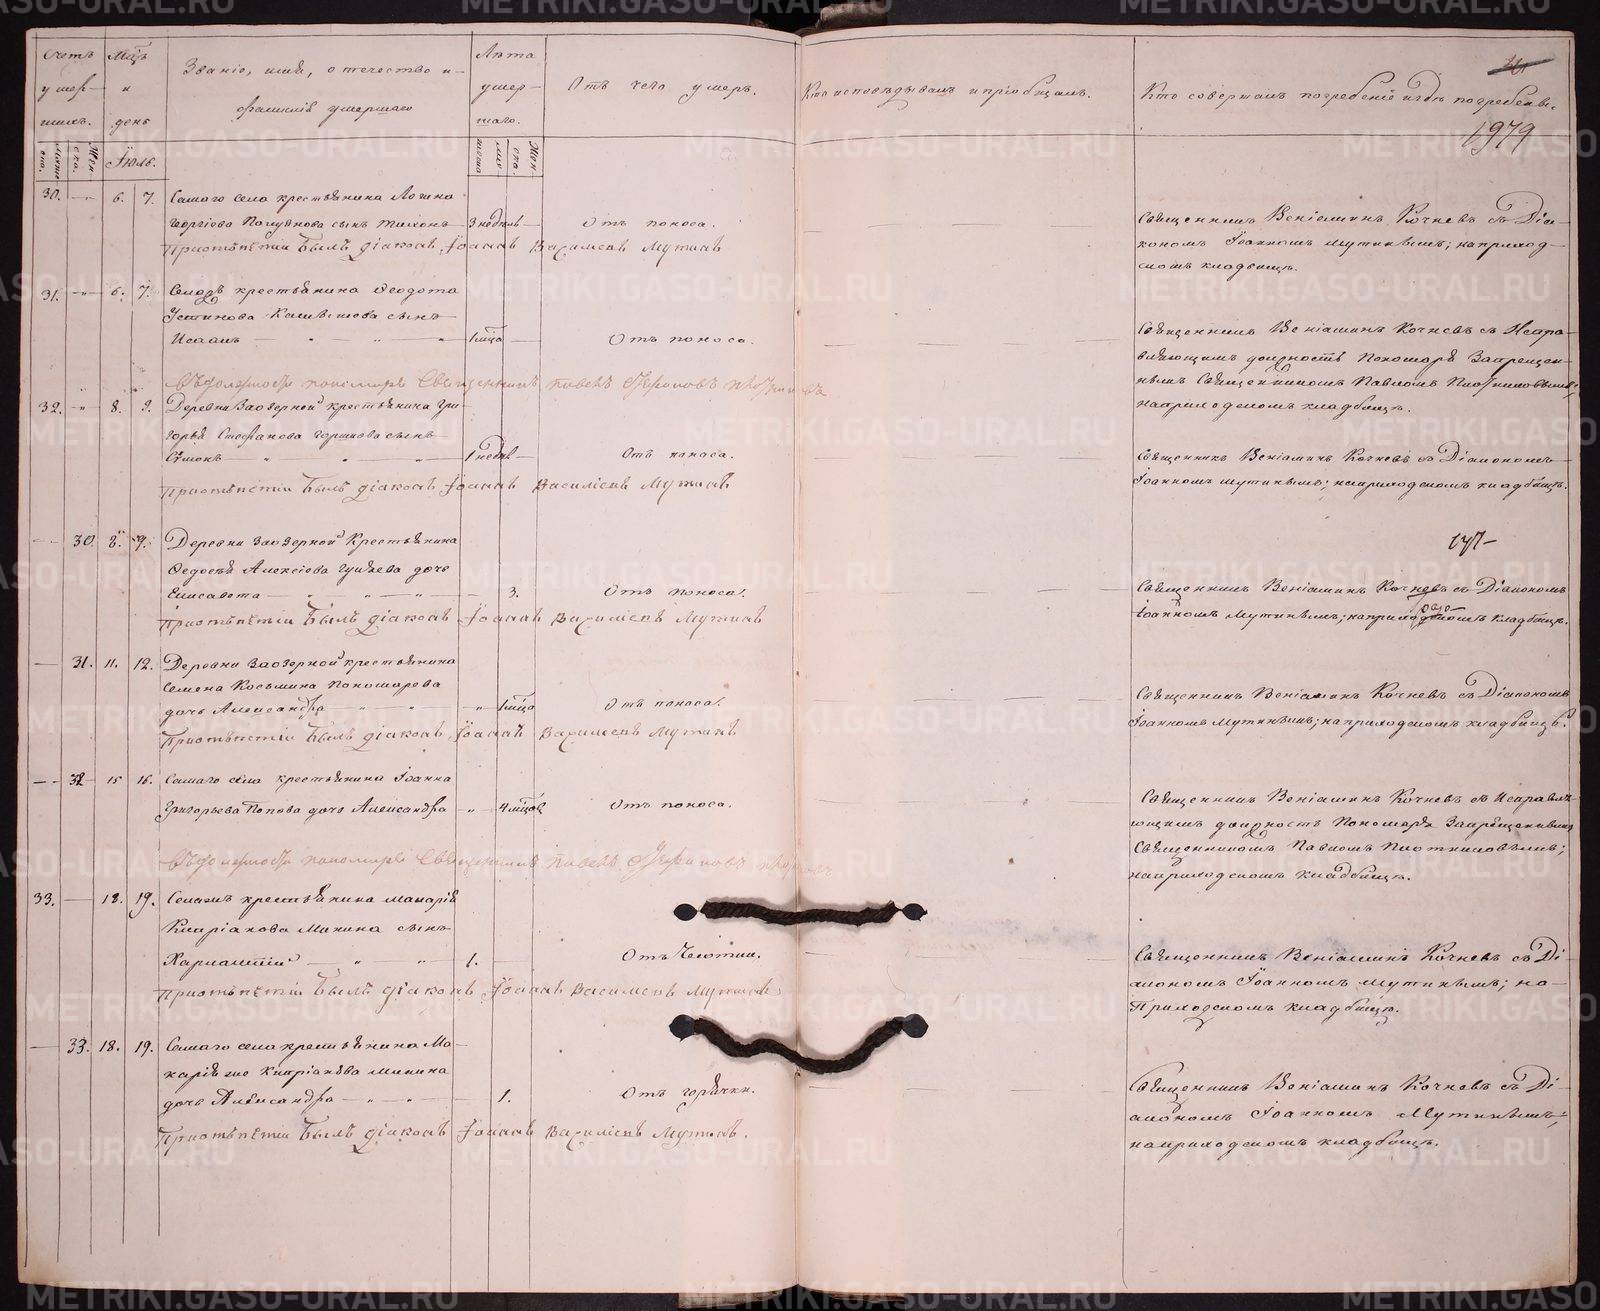 Счетъ умер-шихъ.
Мцъ и день
Званіе, имя, отчество и фамилія умершаго
Лѣта умер-шаго.
Отъ чего умеръ.
Кто исповѣдывалъ и пріобщалъ.
Кто совершалъ погребеніе и гдѣ погребены.
1979
Іюль.
30. — 6. 7. Самаго села крестьянина Логина
Георгіева сынъ Тихонъ 3 недѣль — Отъ поноса.
Священникъ Веніаминъ Кочневъ съ Діа-
кономъ Іоанномъ Мутинымъ; на приход-
скомъ кладбищѣ.
При отпѣтіи былъ діаконъ Іоаннъ Василіевъ Мутинъ
31. — " — 6. 7. Села крестьянина Ѳеодота
Устинова сынъ
Исаакъ — " — " — " 1 мцъ — Отъ поноса.
Священникъ Веніаминъ Кочневъ съ Исправ-
ляющимъ должность Пономаря Запрещен-
нымъ Священникомъ Павломъ Плотниковымъ;
на приходскомъ кладбищѣ.
въ должности пономаря Священникъ павелъ
32. — " — 8. 9. Деревни Заозерной крестьянина Гри-
горья Стефанова Горшкова сынъ
Сѵмонъ — " — " — " — 1 недѣл — Отъ поноса.
Священникъ Веніаминъ Кочневъ съ Діакономъ
Іоанномъ Мутинымъ; на приходскомъ кладбищѣ.
При отпѣтіи былъ діаконъ Іоаннъ Василіевъ Мутинъ
— 30. 8. 9. Деревни Заозерной Крестьянина
Ѳедосѣя Алексіева Гуляева дочь
Елисавета — " — " — " — 3. Отъ поноса.
Священникъ Веніаминъ Кочневъ съ Діакономъ
Іоанномъ Мутинымъ; на приходскомъ кладбищѣ.
При отпѣтіи былъ діаконъ Іоаннъ Василіевъ Мутинъ
— 31. 11. 12. Деревни Заозерной крестьянина
Семена Косьмина Пономарева
дочь Александра — " — " — " — 1 мцъ Отъ поноса.
Священникъ Веніаминъ Кочневъ съ Діакономъ
Іоанномъ Мутинымъ; на приходскомъ кладбищѣ.
При отпѣтіи былъ діаконъ Іоаннъ Василіевъ Мутинъ
— 32 15 16. Самаго села крестьянина Іоанна
Григорьева Попова дочь Александра — " — 4 мцъ Отъ поноса.
Священникъ Веніаминъ Кочневъ съ Исправля-
ющимъ должность Пономаря Запрещеннымъ
Священникомъ Павломъ Плотниковымъ;
на приходскомъ кладбищѣ.
въ должности пономаря Священникъ павелъ
33. — 18. 19. Села крестьянина Макарія
Кипріанова Минина сынъ
Харлампій — " — " 1. Отъ
Священникъ Веніаминъ Кочневъ съ Ді-
акономъ Іоанномъ Мутинымъ; на
Приходскомъ кладбищѣ.
При отпѣтіи былъ діаконъ Іоаннъ Василіевъ Мутинъ
— 33. 18. 19. Самаго села крестьянина Ма-
карія Кипріанова Минина
дочь Александра — " — " — 1. Отъ горячки.
Священникъ Веніаминъ Кочневъ съ Ді-
акономъ Іоанномъ Мутинымъ;
на приходскомъ кладбищѣ.
При отпѣтіи былъ діаконъ Іоаннъ Василіевъ Мутинъ.
METRIKI.GASO-URAL.RU